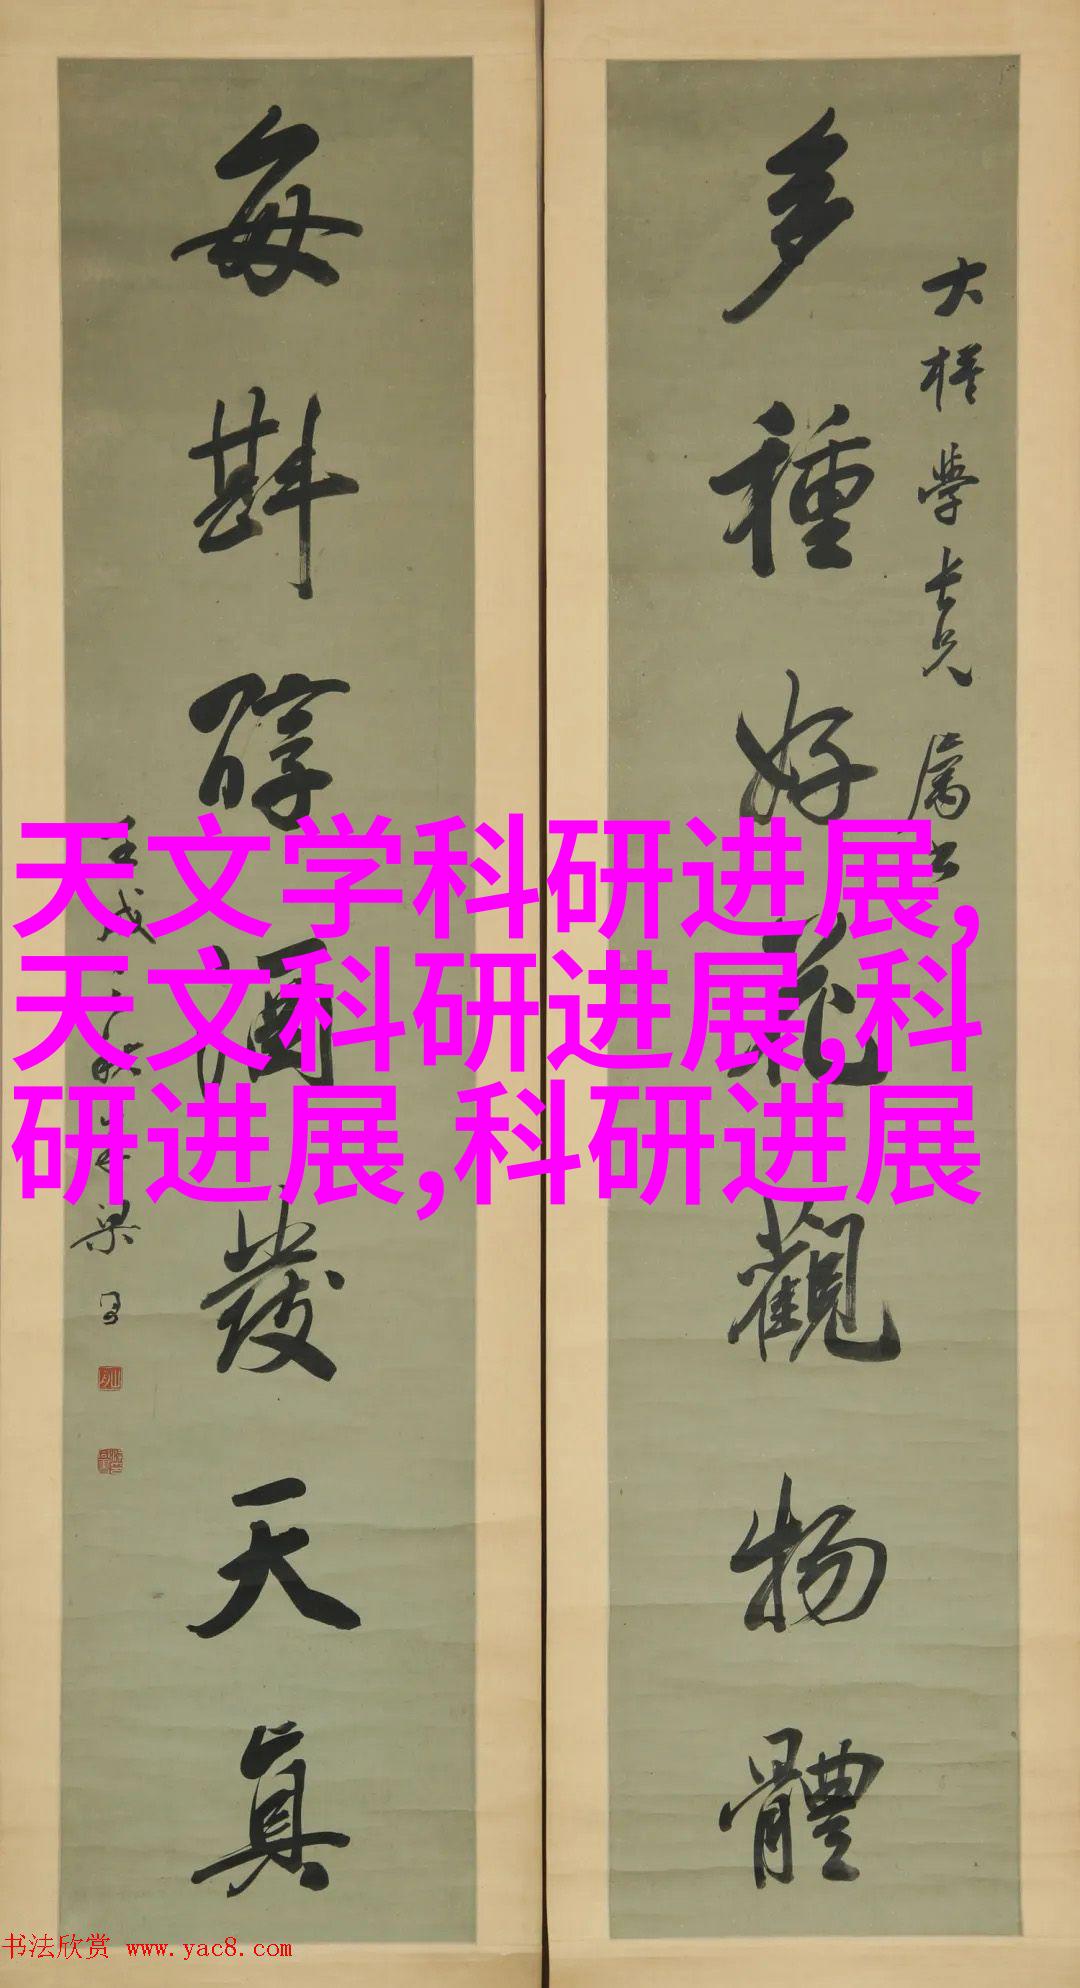 多種好花觀物體
大樣學長兄屬書
每斟醇酒發天真
壬戌
天文学科研进展,
天文科研进展,科
研进展,科研进展
书法欣赏 www.yac8.com